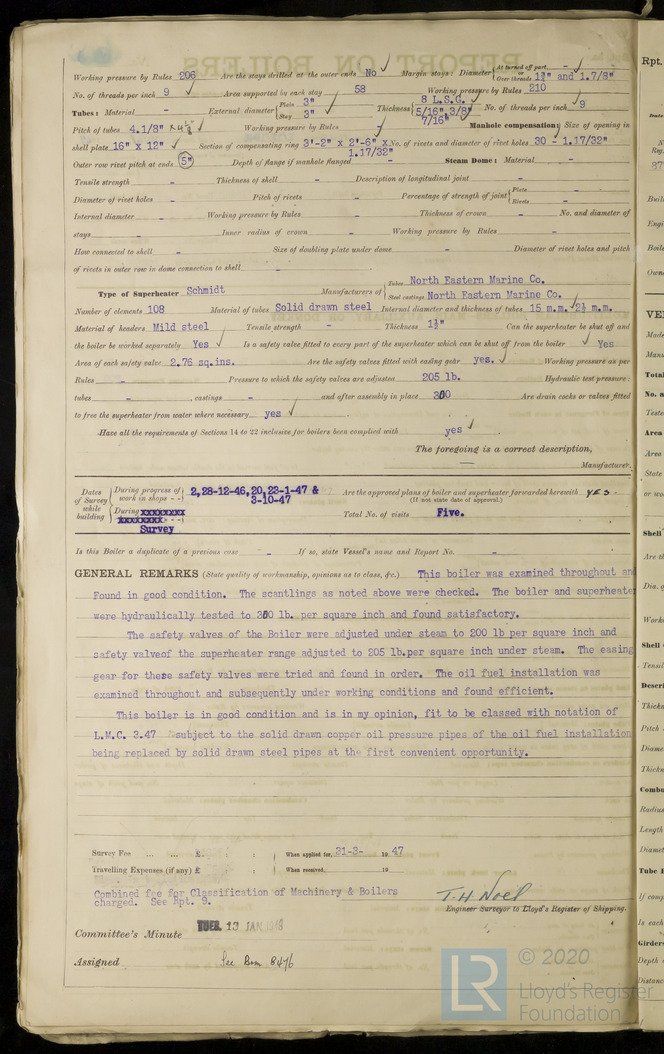 Working pressure by Rules 206 Are the stays drilled at the outer ends No Margin stays: Diameter { At turned off part, - or Over threads 1¾" and 1.7/8"
No. of threads per inch 9 Area supported by each stay 58 Working pressure by Rules 210
Tubes: Material - External diameter { Plain 3" Stay 3" Thickness { 8 L.S.G. 5/16" 3/8" 7/16" No. of threads per inch 9
Pitch of tubes 4.1/8" Working pressure by Rules Manhole compensation: Size of opening in
shell plate 16" x 12" Section of compensating ring 3'-2" x 2'-6" x 1.17/32" No. of rivets and diameter of rivet holes 30 - 1.17/32"
Outer row rivet pitch at ends 5" Depth of flange if manhole flanged - Steam Dome: Material -
Tensile strength - Thickness of shell - Description of longitudinal joint -
Diameter of rivet holes - Pitch of rivets - Percentage of strength of joint { Plate - Rivets -
Internal diameter - Working pressure by Rules - Thickness of crown - No. and diameter of
stays - Inner radius of crown - Working pressure by Rules -
How connected to shell - Size of doubling plate under dome - Diameter of rivet holes and pitch
of rivets in outer row in dome connection to shell -
Type of Superheater Schmidt Manufacturers of { Tubes North Eastern Marine Co. Steel castings North Eastern Marine Co.
Number of elements 108 Material of tubes Solid drawn steel Internal diameter and thickness of tubes 15 m.m. 2½ m.m.
Material of headers Mild steel Tensile strength - Thickness 1½" Can the superheater be shut off and
the boiler be worked separately Yes Is a safety valve fitted to every part of the superheater which can be shut off from the boiler Yes
Area of each safety valve 2.76 sq.ins. Are the safety valves fitted with easing gear yes. Working pressure as per
Rules - Pressure to which the safety valves are adjusted 205 lb. Hydraulic test pressure:
tubes - , castings - and after assembly in place 300 Are drain cocks or valves fitted
to free the superheater from water where necessary yes
Have all the requirements of Sections 14 to 22 inclusive for boilers been complied with yes
The foregoing is a correct description,
Manufacturer.
Dates of Survey while building { During progress of work in shops - - } 2,28-12-46,20,23-1-47 & 3-10-47 Are the approved plans of boiler and superheater forwarded herewith YES.
(If not state date of approval.)
During xxxxxxxx xxxxxxxx - - - Survey Total No. of visits Five.
Is this Boiler a duplicate of a previous case - If so, state Vessel's name and Report No. -
GENERAL REMARKS (State quality of workmanship, opinions as to class, &c.) This boiler was examined throughout an
Found in good condition. The scantlings as noted above were checked. The boiler and superheate
were hydraulically tested to 300 lb. per square inch and found satisfactory.
The safety valves of the Boiler were adjusted under steam to 200 lb per square inch and
safety valveof the superheater range adjusted to 205 lb.per square inch under steam. The easing
gear for these safety valves were tried and found in order. The oil fuel installation was
examined throughout and subsequently under working conditions and found efficient.
This boiler is in good condition and is in my opinion, fit to be classed with notation of
L.M.C. 3.47 subject to the solid drawn copper oil pressure pipes of the oil fuel installation
being replaced by solid drawn steel pipes at the first convenient opportunity.
Survey Fee ... ... £ : : When applied for, 31-3- 19 47
Travelling Expenses (if any) £ : : When received, 19
Combined fee for Classification of Machinery & Boilers
charged. See Rpt. 9.
T. H. Noel
Engineer Surveyor to Lloyd's Register of Shipping.
Committee's Minute TUES. 13 JAN 1948
Assigned See Bom 8476
LR © 2020
Lloyd's Register
Foundation
Rpt.